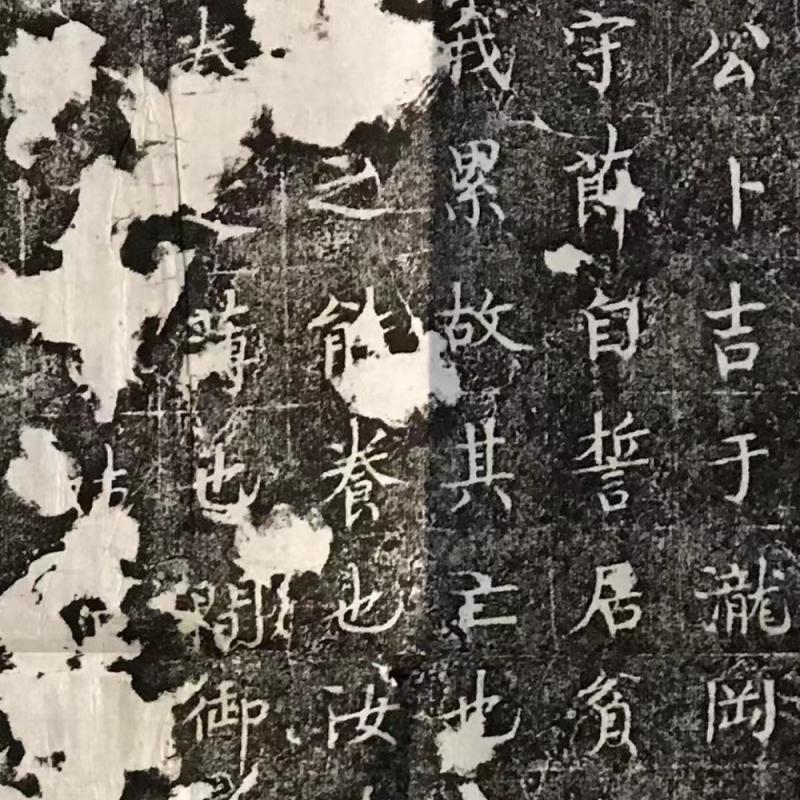 公卜吉于瀧岡
守莭自誓居貧
我累故其亡也
之能養也汝
薄也間御